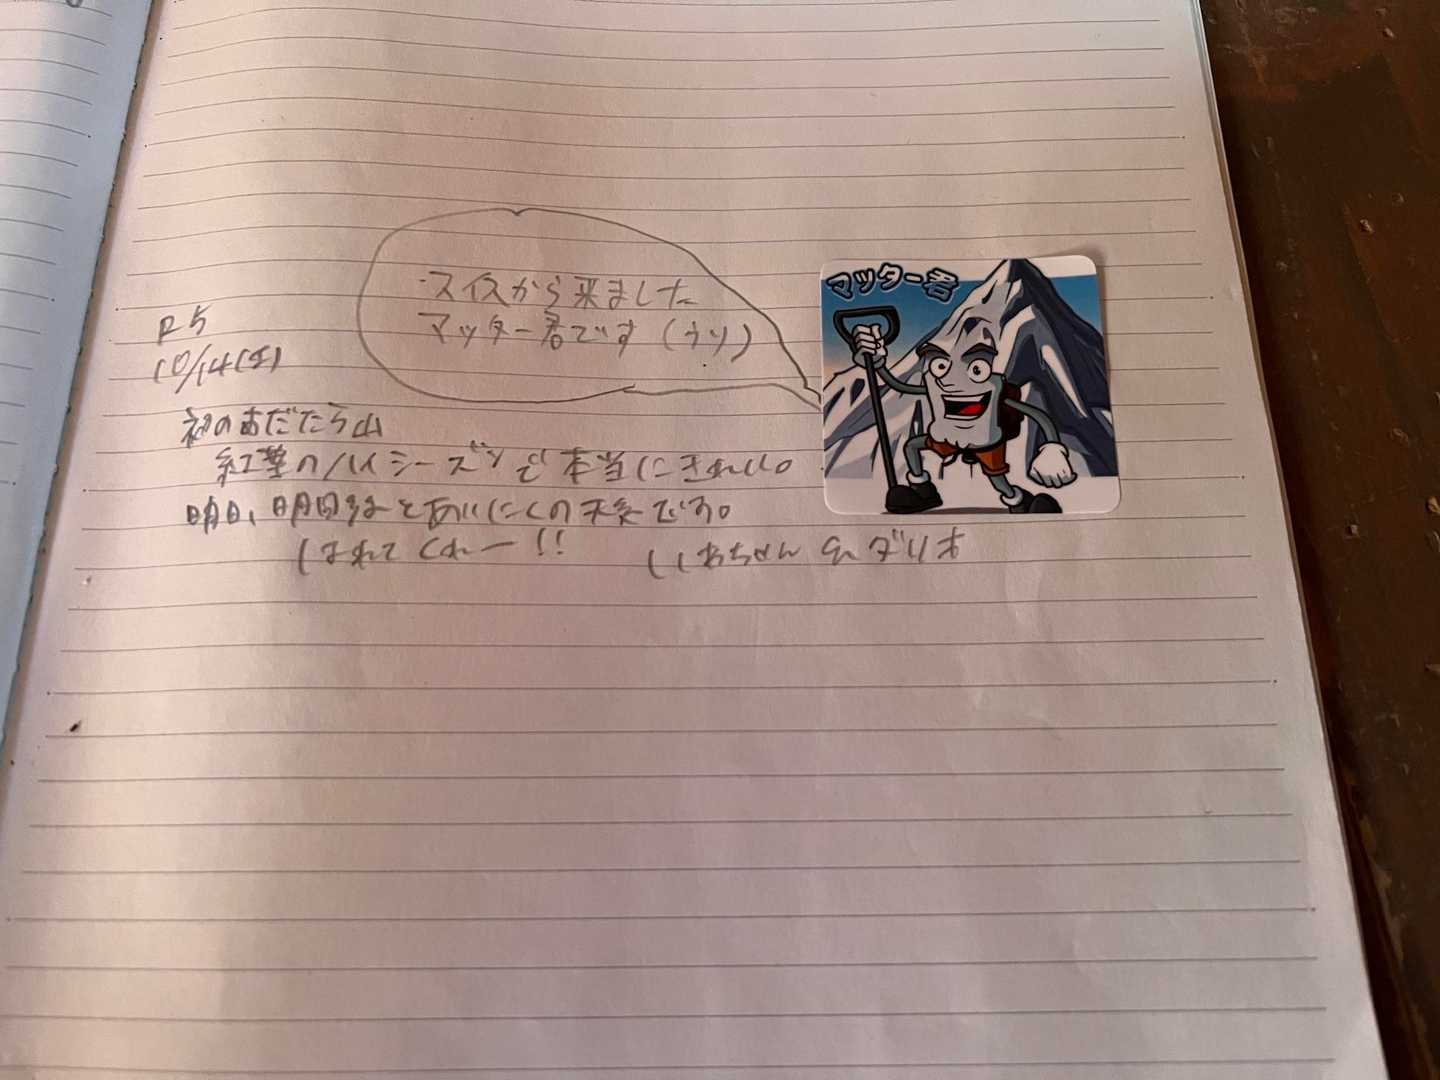 スイスから来ました
マッター君です(ウソ)
マッター君
R5
10/14(土)
初のあだたら山
紅葉のハイシーズンで本当にきれい。
明日、明日とあいにくの天気です。
はれてくれー!!
いあちゃん ダリオ